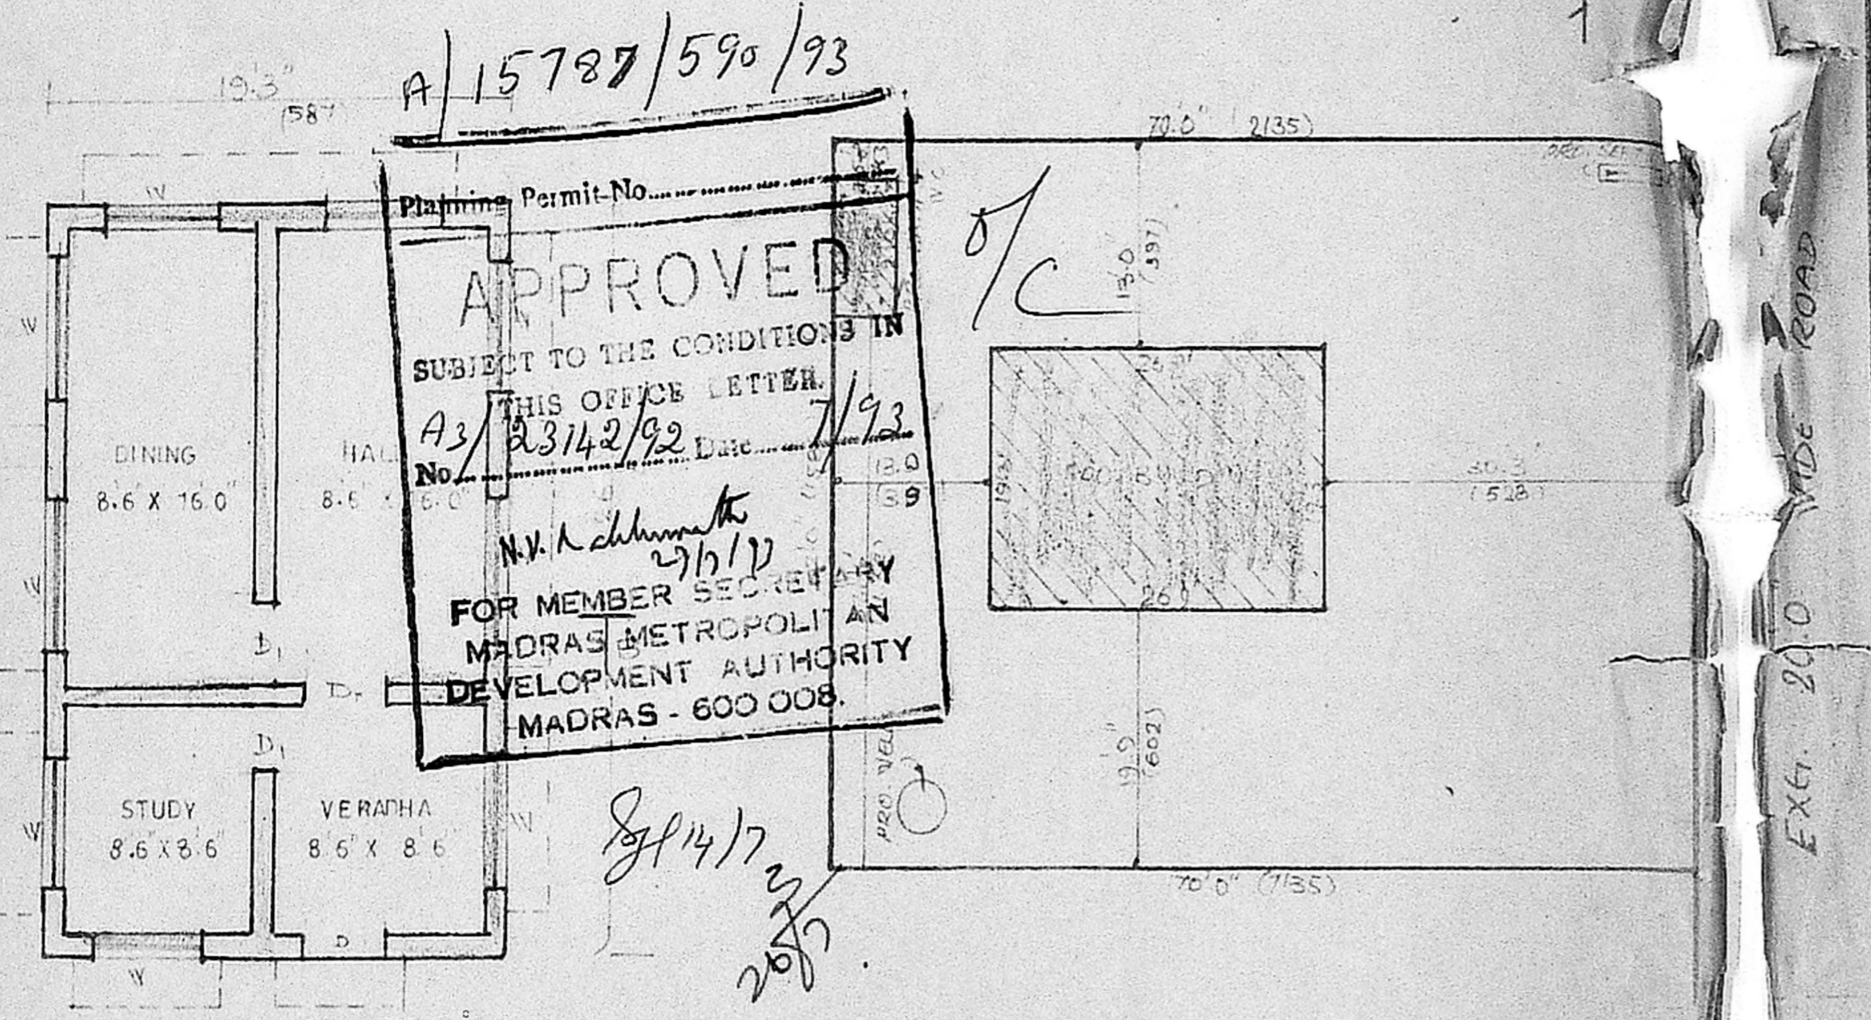 A/15787/590/93
19'3"
(587
Planning Permit No.
APPROVED
SUBJECT TO THE CONDITIONS IN
THIS OFFICE LETTER.
No. A3/23142/92 Date 7/93
N.V.
FOR MEMBER SECRETARY
MADRAS METROPOLITAN
DEVELOPMENT AUTHORITY
MADRAS - 600 008.
W
W
DINING
8'.6" X 16.0"
HAL
8'.6" X 6.0"
W
W
D1
D1
D1
STUDY
8'.6" X 8'.6"
VERANHA
8'6" X 8'6"
W
W
D
W
14/7
26/7
70'.0" 2135)
O/C
13'0"
(397)
26.0"
19'3"
13.0
(3.9
30.3"
(528)
26.
19'9"
(602)
PRO. WELL
70'0" (2135)
EXG. 20.0 WIDE ROAD
1